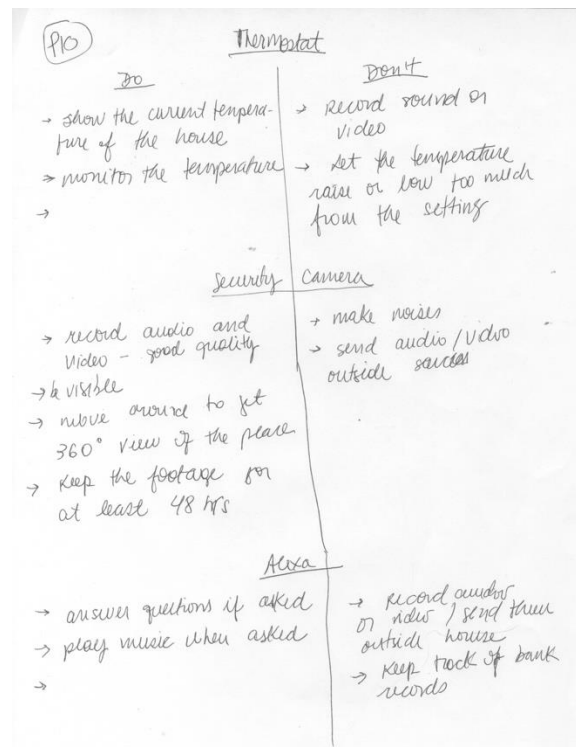 P10
Thermostat
Do
→ show the current tempera-
ture of the house
→ monitor the temperature
→
Don't
→ Record sound or
video
→ set the temperature
raise or low too much
from the setting
Security Camera
→ record audio and
video - good quality
→ be visible
→ move around to get
360° view of the place
→ Keep the footage for
at least 48 hrs
→ make noises
→ send audio/video
outside
Alexa
→ answer questions if asked
→ play music when asked
→
→ Record audio
or video / send them
outside house
→ Keep track of bank
records